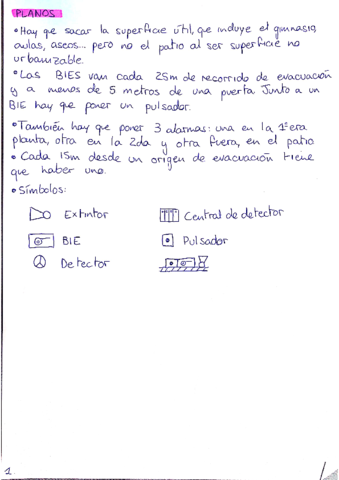 PLANOS
• Hay que sacar la superficie útil, que incluye el gimnasio,
aulas, aseos... pero no el patio al ser superficie no
urbanizable.
• Las BIES van cada 25m de recorrido de evacuación
y a menos de 5 metros de una puerta. Junto a un
BIE hay que poner un pulsador.
• También hay que poner 3 alarmas: una en la 1ªera
planta, otra en la 2da y otra fuera, en el patio
• Cada 15m desde un origen de evacuación tiene
que haber uno.
• Símbolos:
Extintor
Central de detector
BIE
Pulsador
Detector
1